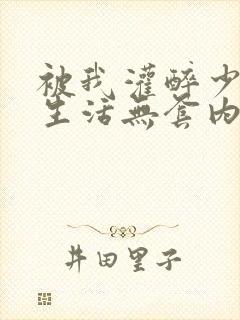 被我灌醉少
生活無套內
井田里子